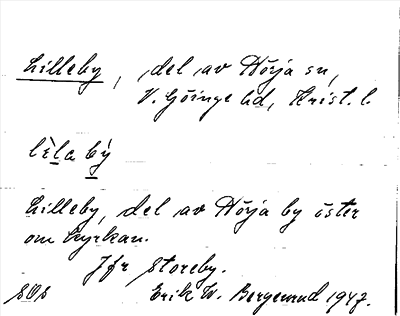 Lilleby, del av Nörja sn,
V. Göinge hd, Krist. l.
lìla bý
Lilleby, del av Nörja by öster
om kyrkan.
Jfr Storeby.
SOs Erik W. Bergenrud 1947.